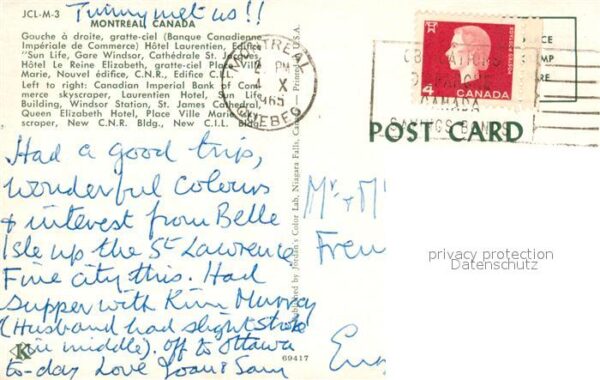 Timmy met us!!
JCL-M-3
MONTREAL CANADA
Gauche à droite, gratte-ciel (Banque Canadienne
Impériale de Commerce) Hôtel Laurentien, Edifice
"Sun Life, Gare Windsor, Cathédrale St. Jacques,
Hôtel Le Reine Elizabeth, gratte-ciel Place Ville
Marie, Nouvel édifice, C.N.R., Edifice C.I.L.
Left to right: Canadian Imperial Bank of Com-
merce skyscraper, Laurentien Hotel, Sun Life
Building, Windsor Station, St. James Cathedral,
Queen Elizabeth Hotel, Place Ville Marie Sky-
scraper, New C.N.R. Bldg., New C.I.L. Bldg.
Had a good trip,
wonderful colours
& interest from Belle
Isle up the St Lawrence
Fine city this. Had
supper with Kim Murray
(Husband had slight stroke
in middle). off to Ottawa
to-day Love Joan & Sam
K
69417
Published by Jordan's Color Lab, Niagara Falls, Canada - Printed U.S.A.
MONTREAL
2 PM
4 X
1965
QUEBEC
OBLIGATIONS
D'EPARGNE
CANADA
SAVINGS BONDS
CANADA
4
POST CARD
Mr + M
Fren
privacy protection
Datenschutz